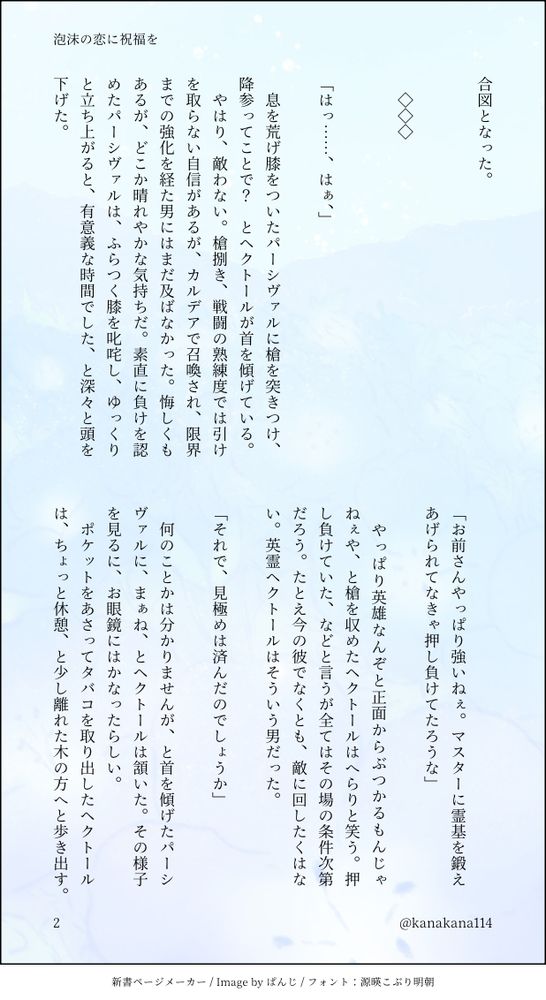 泡沫の恋に祝福を
合図となった。
◇◇◇
「はっ……、はぁ、」
息を荒げ膝をついたパーシヴァルに槍を突きつけ、
降参ってことで？　とヘクトールが首を傾げている。
やはり、敵わない。槍捌き、戦闘の熟練度では引け
を取らない自信があるが、カルデアで召喚され、限界
までの強化を経た男にはまだ及ばなかった。悔しくも
あるが、どこか晴れやかな気持ちだ。素直に負けを認
めたパーシヴァルは、ふらつく膝を叱咤し、ゆっくり
と立ち上がると、有意義な時間でした、と深々と頭を
下げた。
「お前さんやっぱり強いねぇ。マスターに霊基を鍛え
あげられてなきゃ押し負けてたろうな」
やっぱり英雄なんぞと正面からぶつかるもんじゃ
ねぇや、と槍を収めたヘクトールはへらりと笑う。押
し負けていた、などと言うが全てはその場の条件次第
だろう。たとえ今の彼でなくとも、敵に回したくはな
い。英霊ヘクトールはそういう男だった。
「それで、見極めは済んだのでしょうか」
何のことかは分かりませんが、と首を傾げたパーシ
ヴァルに、まぁね、とヘクトールは頷いた。その様子
を見るに、お眼鏡にはかなったらしい。
ポケットをあさってタバコを取り出したヘクトール
は、ちょっと休憩、と少し離れた木の方へと歩き出す。
2
@kanakana114
新書ページメーカー / Image by ぱんじ / フォント：源暎こぶり明朝